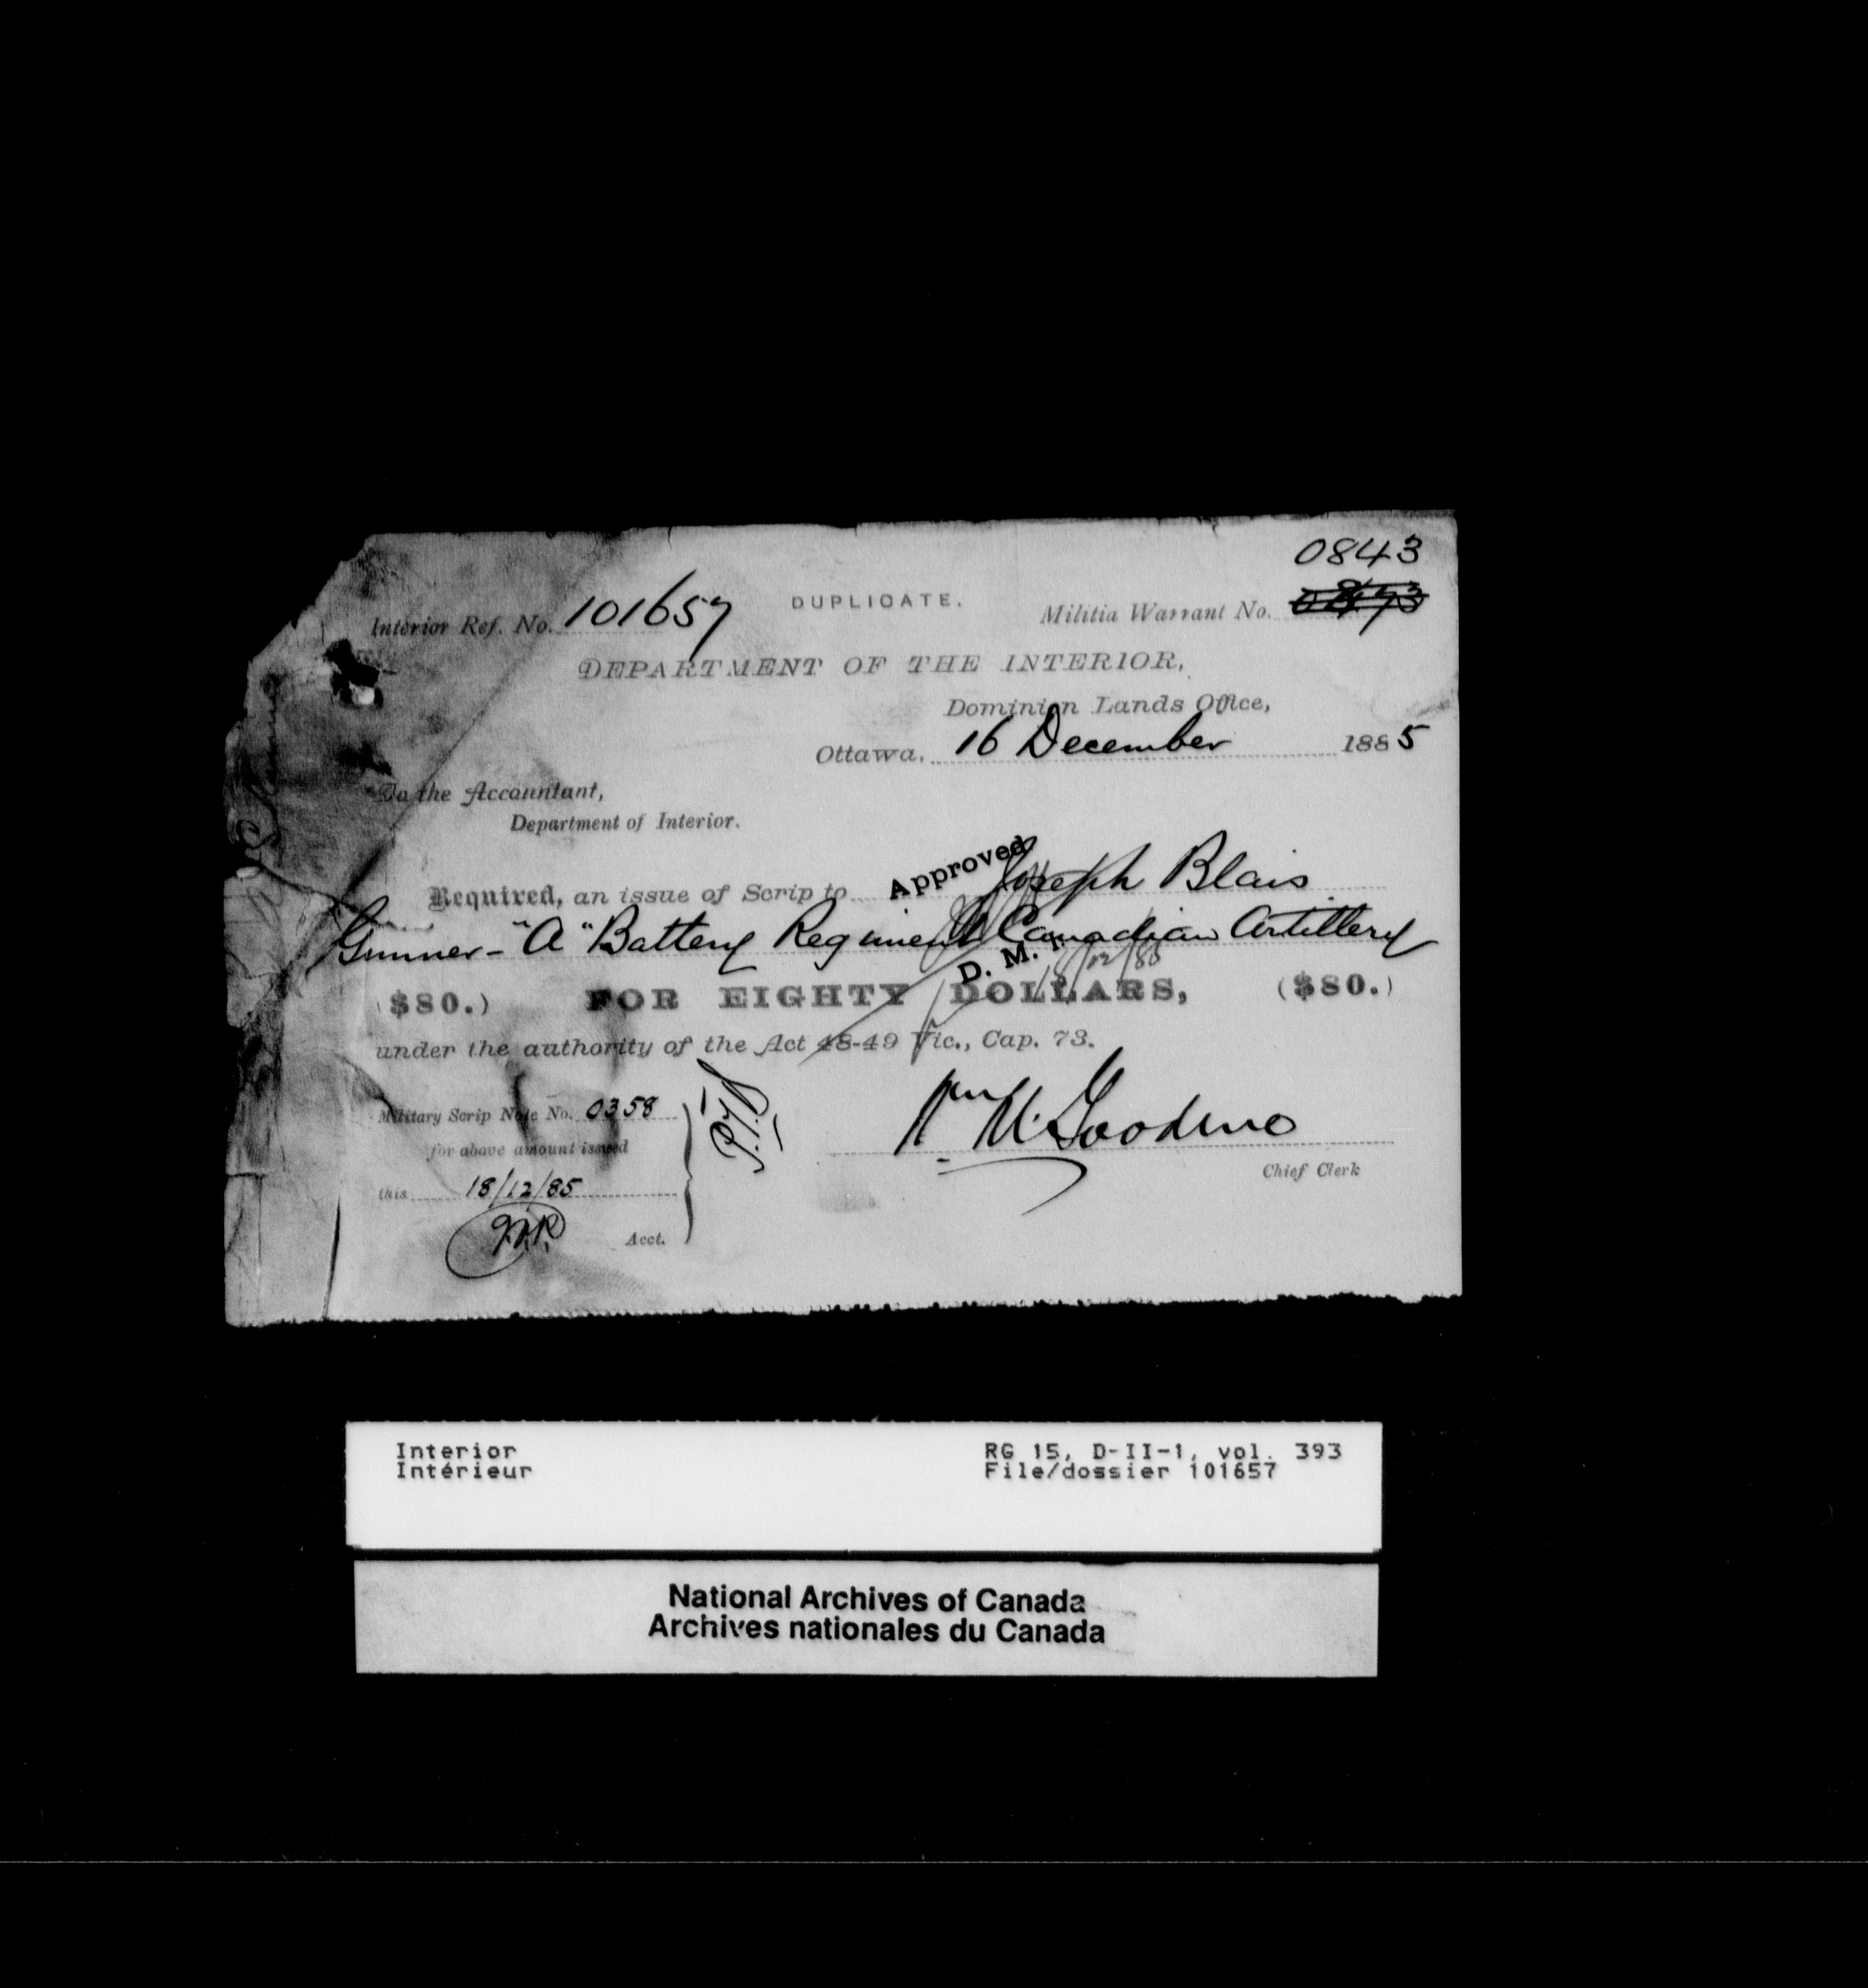 0843
Interior Ref. No. 101657 DUPLICATE. Militia Warrant No.
DEPARTMENT OF THE INTERIOR,
Dominion Lands Office,
Ottawa, 16 December 1885
To the Accountant,
Department of Interior.
Approved
Required, an issue of Scrip to Joseph Blais
Gunner - "A" Battery Regiment Canadian Artillery
D. M. 18/12/85
($80.) FOR EIGHTY DOLLARS, ($80.)
under the authority of the Act 48-49 Vic., Cap. 73.
Military Scrip Note No. 0358
for above amount issued
this 18/12/85
Acct.
Chief Clerk
Interior RG 15, D-II-1, vol. 393
Intérieur File/dossier 101657
National Archives of Canada
Archives nationales du Canada